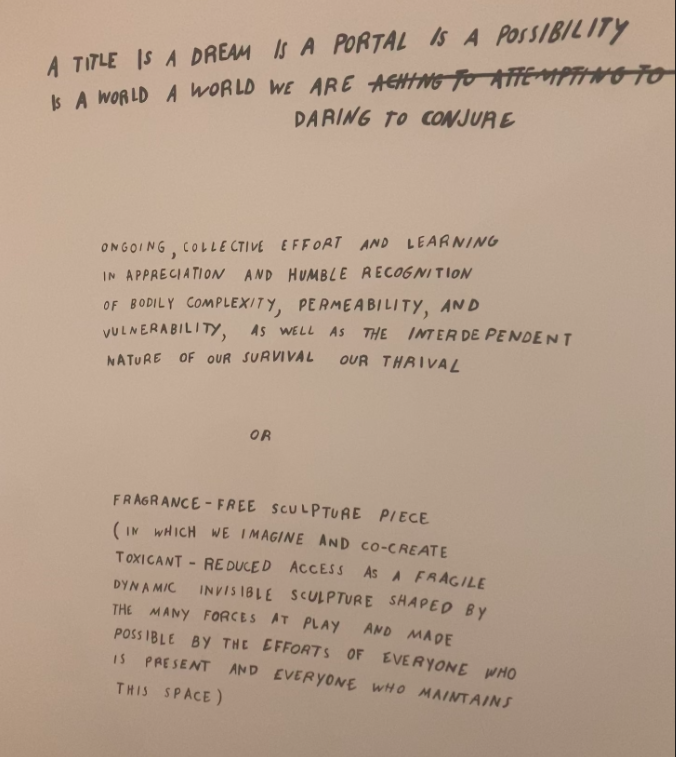 A TITLE IS A DREAM IS A PORTAL IS A POSSIBILITY
IS A WORLD A WORLD WE ARE ACHING TO ATTEMPTING TO
DARING TO CONJURE
ONGOING, COLLECTIVE EFFORT AND LEARNING
IN APPRECIATION AND HUMBLE RECOGNITION
OF BODILY COMPLEXITY, PERMEABILITY, AND
VULNERABILITY, AS WELL AS THE INTERDEPENDENT
NATURE OF OUR SURVIVAL OUR THRIVAL
OR
FRAGRANCE-FREE SCULPTURE PIECE
(IN WHICH WE IMAGINE AND CO-CREATE
TOXICANT-REDUCED ACCESS AS A FRAGILE
DYNAMIC INVISIBLE SCULPTURE SHAPED BY
THE MANY FORCES AT PLAY AND MADE
POSSIBLE BY THE EFFORTS OF EVERYONE WHO
IS PRESENT AND EVERYONE WHO MAINTAINS
THIS SPACE)